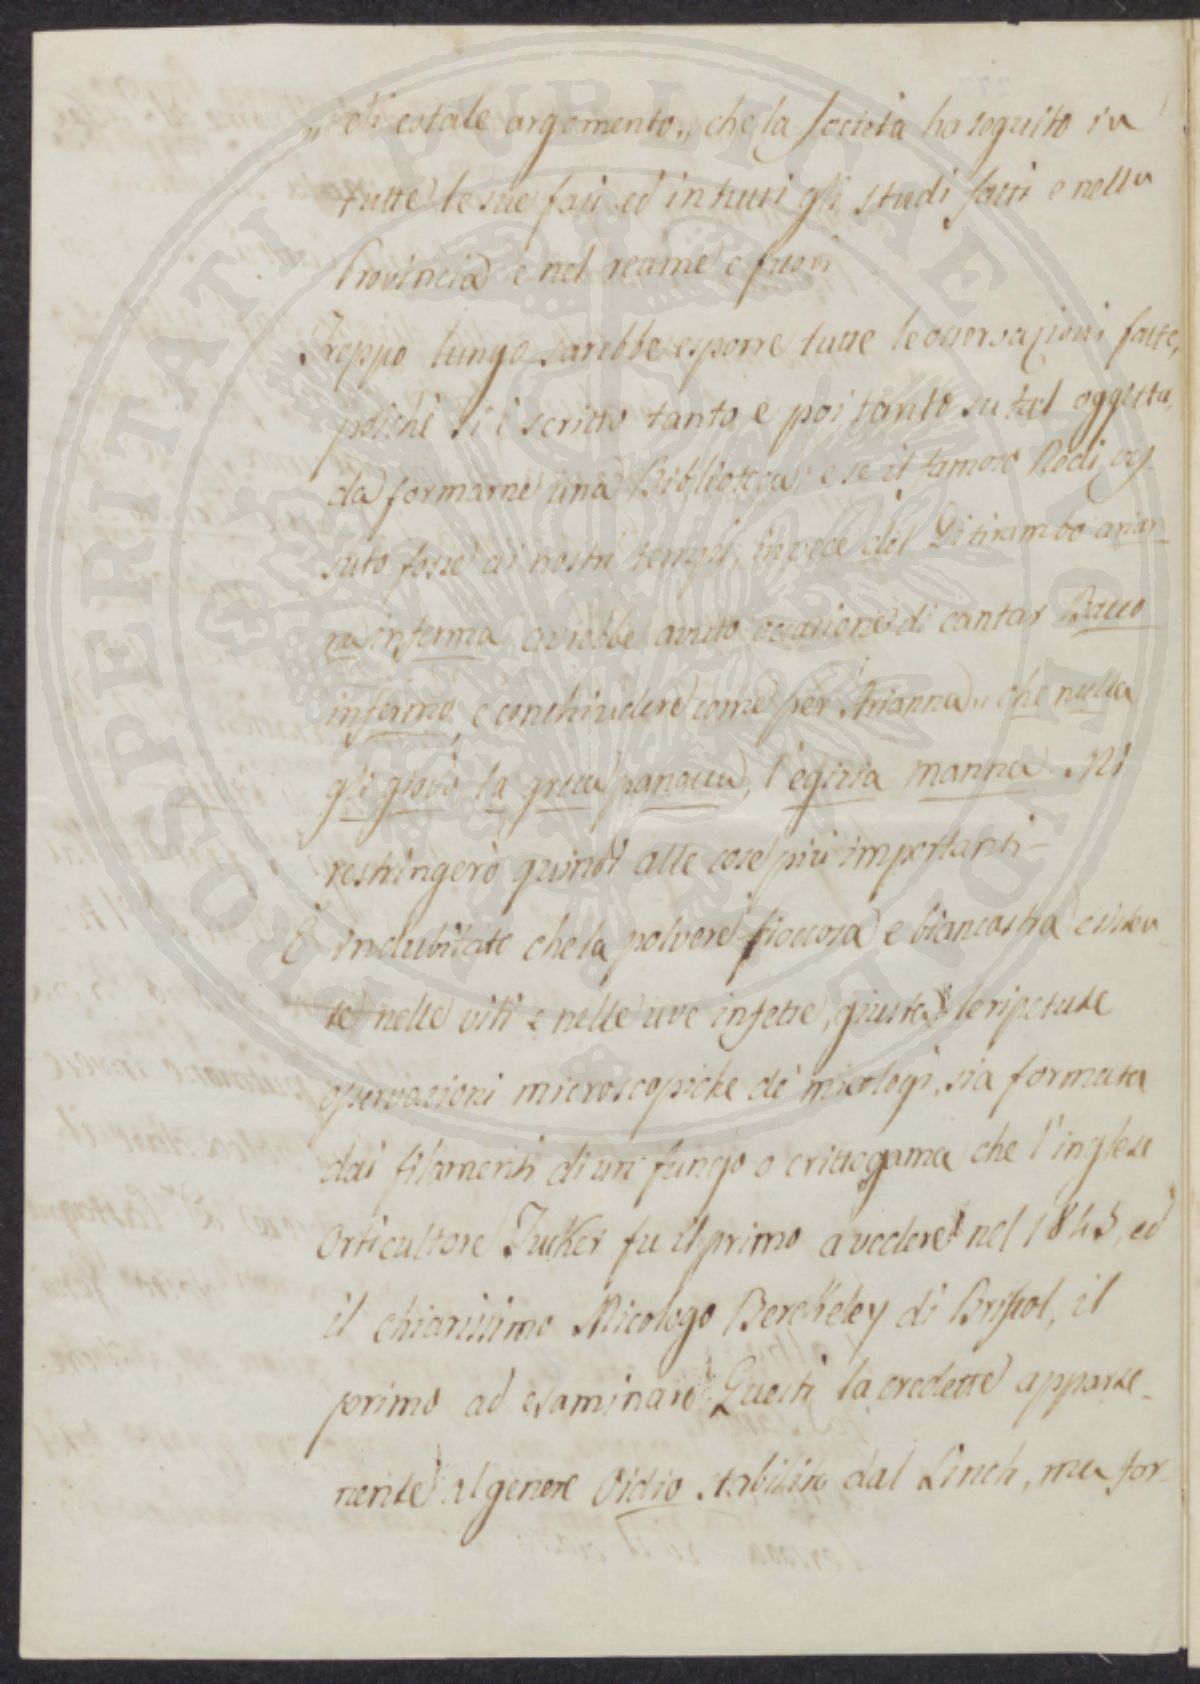 „ di cotale argomento„ che la Società ha seguito in
tutte le sue fasi ed in tutti gli studi fatti e nella
Provincia e nel reame e fuori
Troppo lungo sarebbe esporre tutte le osservazioni fatte,
poichè si è scritto tanto e poi tanto su tal oggetto,
da formarne una Biblioteca; e se il famoso Redi vis-
suto fosse ai nostri tempi, invece del Ditirambo arian-
na inferma avrebbe avuto occasione di cantar Bacco
infermo, e conchiudere come per Arianna„ che nulla
gli giovò la greca panacea, l'egizia manna. Mi
restringerò quindi alle cose più importanti-
È indubitato che la polvere fioccosa e biancastra esisten-
te nelle viti e nelle uve infette, giusta le ripetute
osservazioni microscopiche de' micologi, sia formata
dai filamenti di un fungo o crittogama che l'inglese
Orticultore Tuker fu il primo a vedere nel 1845, ed
il chiarissimo Micologo Berckeley di Bristol, il
primo ad esaminare. Questi la credette apparte-
nente al genere Oidio stabilito dal Linch, ma for-
PROSPERITATI PUBLICAE AUGENDAE